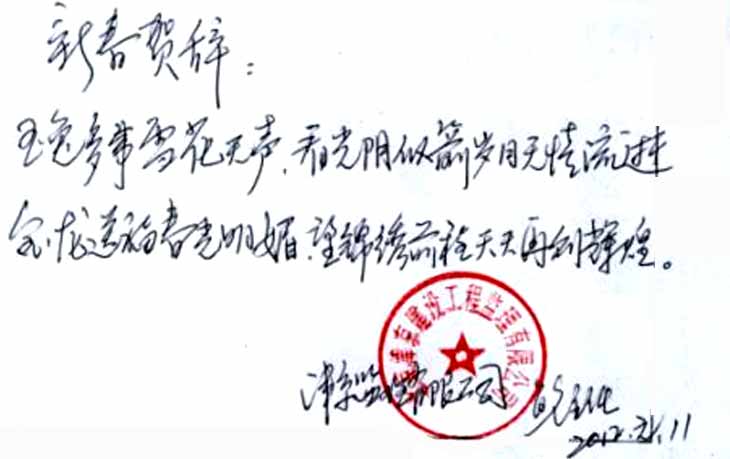 新春贺辞：
玉兔含带雪花无声，看光阴似箭岁月无情流进来
金龙送福春光明媚，望锦绣前程天天再创辉煌。
津京建设工程监理有限公司
津京监理有限公司
2012.元.11